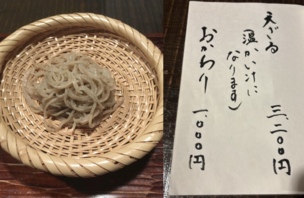 天ざる
（温かい汁に
なります）
三、二〇〇円
おかわり
一、〇〇〇円